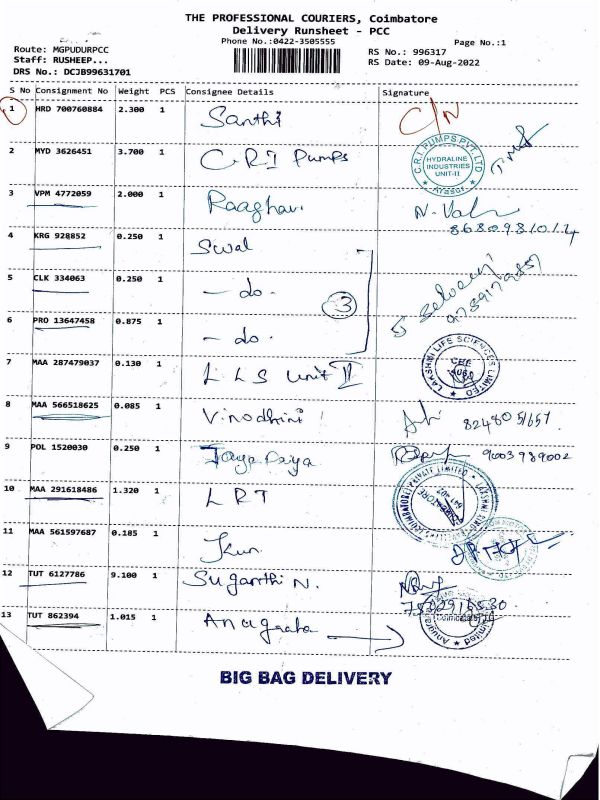 THE PROFESSIONAL COURIERS, Coimbatore
Delivery Runsheet - PCC
Phone No.:0422-3505555
Page No.:1
Route: MGPUDURPCC
Staff: RUSHEEP...
DRS No.: DCJB99631701
RS No.: 996317
RS Date: 09-Aug-2022
S No Consignment No Weight PCS Consignee Details Signature
1 HRD 700760884 2.300 1 Santhi C/N
2 MYD 3626451 3.700 1 C.R.I Pumps
C.R.I. PUMPS PVT. LTD
HYDRALINE
INDUSTRIES
UNIT-II
3 VPM 4772059 2.000 1 Raaghavi
8680981012
4 KRG 928852 0.250 1 Swal
5 CLK 334063 0.250 1 - do.
3
6 PRO 13647458 0.875 1 - do.
7 MAA 287479037 0.130 1 L L S Unit II
LAKSHMI LIFE SCIENCES LIMITED
8 MAA 566518625 0.085 1 Vinodhini 8248051657.
9 POL 1520030 0.250 1 Jaya Priya 9003989002
10 MAA 291618486 1.320 1 L R T
11 MAA 561597687 0.185 1
12 TUT 6127786 9.100 1 Suganthi N.
13 TUT 862394 1.015 1
BIG BAG DELIVERY